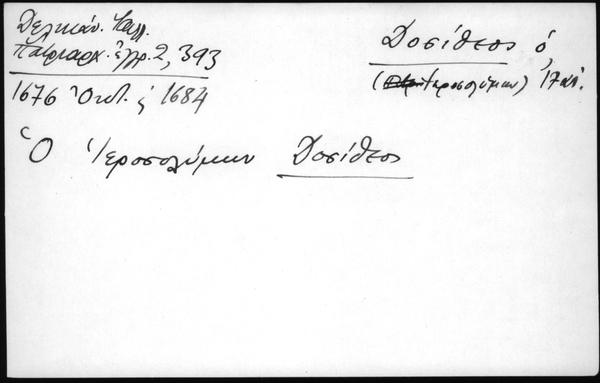 Δελικάν. Καλλ.
Πατριαρχ. ἔγγρ. 2, 393
1676 Ὀκτ. ἐ 1684
Δοσίθεος ὁ,
(Ἱεροσολύμων) 17 αἰ.
Ὁ Ἱεροσολύμων Δοσίθεος